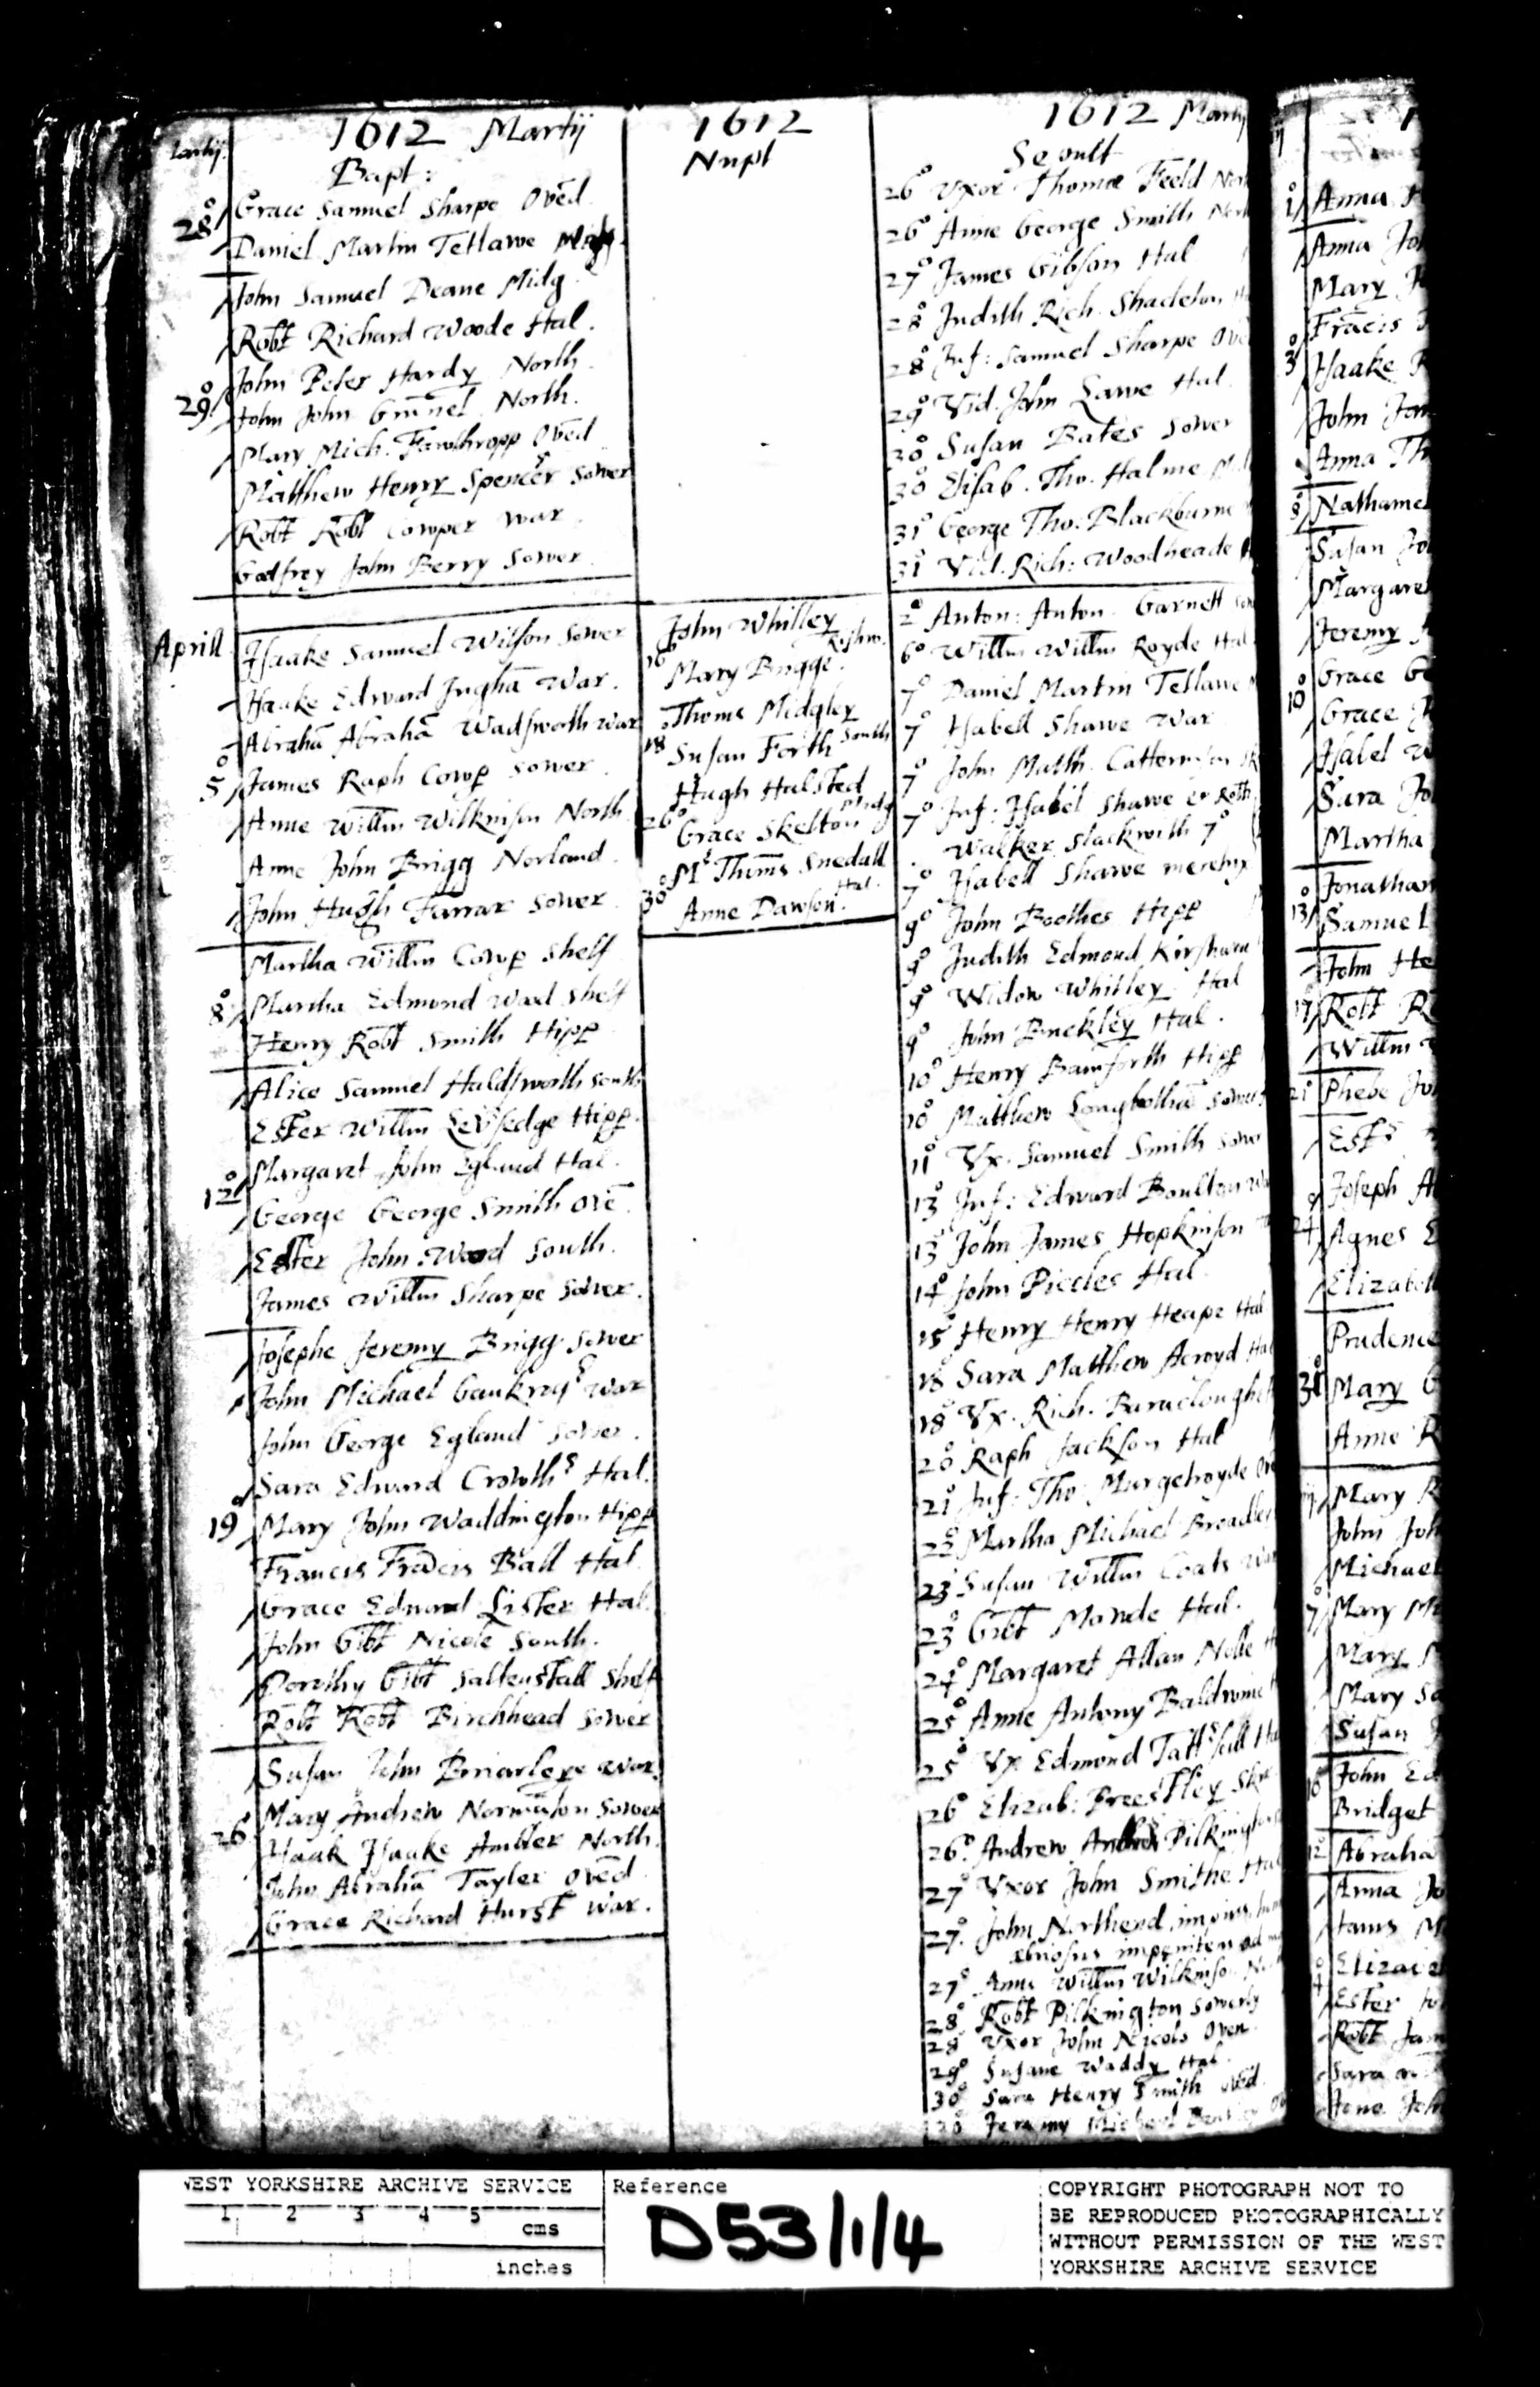 1612 Martij
Bapt:
28° Grace Samuel Sharpe Ovēd
Daniel Martin Tetlawe
John Samuel Deane Midg
Robt Richard Woode Hal.
John Peter Hardy North
29° John John Grūnel North.
Mary Mich. Fawthropp Ovēd
Matthew Henry Spencer Sower
Robt Robt Cowper War
Godfrey John Berry Sower
Aprill
Isaake Samuel Wilson Sower
Isaake Edward Inghā War.
Abrahā Abrahā Wadsworth War
5° James Raph Cowp Sower
Anne Willm Wilkinson North
Anne John Brigg Norland
John Hugh Farrar Sower
Martha Willm Cowp Shelf
8° Martha Edmond Wood Shelf
Henry Robt Smith Hipp
Alice Samuel Haldsworth South
Ester Willm Leysedge Hipp.
12° Margaret John Egland Hal.
George George Smith Ove
Ester John Wood South.
James Willm Sharpe Sower.
Josephe Jeremy Brigg Sower
John Michael War
John George Egland Sower.
Sara Edward Crowths Hal.
19° Mary John Waddington Hipp
Francis Frācis Ball Hal
Grace Edward Lister Hal.
John Gibt Nicole South.
Dorothy Gibt Saltenstall Shelf
Robt Robt Birchhead Sower
Susan John Briarleye War.
26° Mary Andrew Normāton Sower
Isaak Isaake Ambler North.
John Abrahā Tayler Ovēd
Grace Richard Hurst War.
1612
Nupt
John Whitley
16° Mary Brigge.
Thoms Midgley
18 Susan Forth South
Hugh Halsted
26° Grace Skelton Midg
Mr Thoms Snedall
30° Anne Dawson. Hal.
1612 Martij
Sepult
26° Vxor Thomæ Feeld Nor
26° Anne George Smith Nor
27° James Gibson Hal
28° Judith Rich. Shacleton
28° Inf: Samuel Sharpe Ove
29° Vid. John Lawe Hal.
30° Susan Bates Sower
30° Elisab. Tho. Halme
31° George Tho. Blackburne
31° Vid. Rich: Woodheade
2° Anton: Anton. Garnett
6° Willm Willm Royde Hal
7° Daniel Martin Tetlawe
7° Isabell Shawe War
7° John Matth.
7° Inf: Isabel Shawe et Robt
Walker Slackwith 7°
7° Isabell Shawe meretrix
9° John Boothes Hipp
9° Judith Edmond Kirshaw
9° Widow Whitley Hal
9° John Buckley Hal.
10° Henry Bamforth Hipp
10° Matthew Longbothā Sower
11° Vx. Samuel Smith Sower
13° Inf: Edward Boulton
13° John James Hopkinson
14° John Piccles Hal
15° Henry Henry Heape Hal
18° Sara Matthew Acroyd Hal
18° Vx. Rich. Baracloughe
20° Raph Jackson Hal
21° Inf: Tho: Murgetroyde Ove
22° Martha Michael Breadley
23° Susan Willm Coats War
23° Gibt Mawde Hal.
24° Margaret Allan Nolle
25° Anne Antony Baldwine
25° Vx Edmond
26° Elizab: Preestley
26° Andrew Pilkington
27° Vxor John Smithe Hal
27° John Northend, impius
ebriosus impenitens
27° Anne Willm Wilkinso
28° Robt Pilkington Sowerby
28° Vxor John Nicols Oven
29° Susane Waddy Hal.
30° Sara Henry Smith Ovēd
30° Jeremy Michael
1° Anna
Anna Joh
Mary
Frācis
3° Isaake
John
Anna Th
8° Nathaniel
Susan
Margare
Jeremy
10° Grace
Grace
Isabel
Sara
Martha
13° Jonathan
Samuel
John He
17° Robt
Willm
21° Phebe
Joseph
24° Agnes
Elizabeth
Prudence
31° Mary
Anne
Mary
John Joh
Michael
7° Mary
Mary
Mary
Susan
John Ed
Bridget
12° Abrahā
Anna
Ester
Robt Jam
Sara
Jane Joh
WEST YORKSHIRE ARCHIVE SERVICE
1 2 3 4 5 cms
inches
Reference
D53/1/4
COPYRIGHT PHOTOGRAPH NOT TO
BE REPRODUCED PHOTOGRAPHICALLY
WITHOUT PERMISSION OF THE WEST
YORKSHIRE ARCHIVE SERVICE